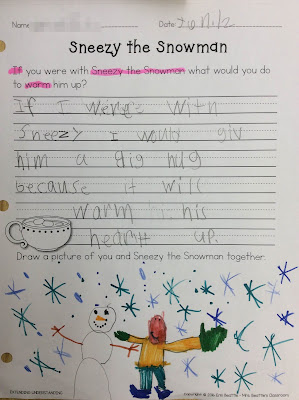 Name Date:
Sneezy the Snowman
If you were with Sneezy the Snowman what would you do
to warm him up?
If I were with
Sneezy I would giv
him a big hug
because it will
warm his
heart up.
Draw a picture of you and Sneezy the Snowman together:
EXTENDING UNDERSTANDING